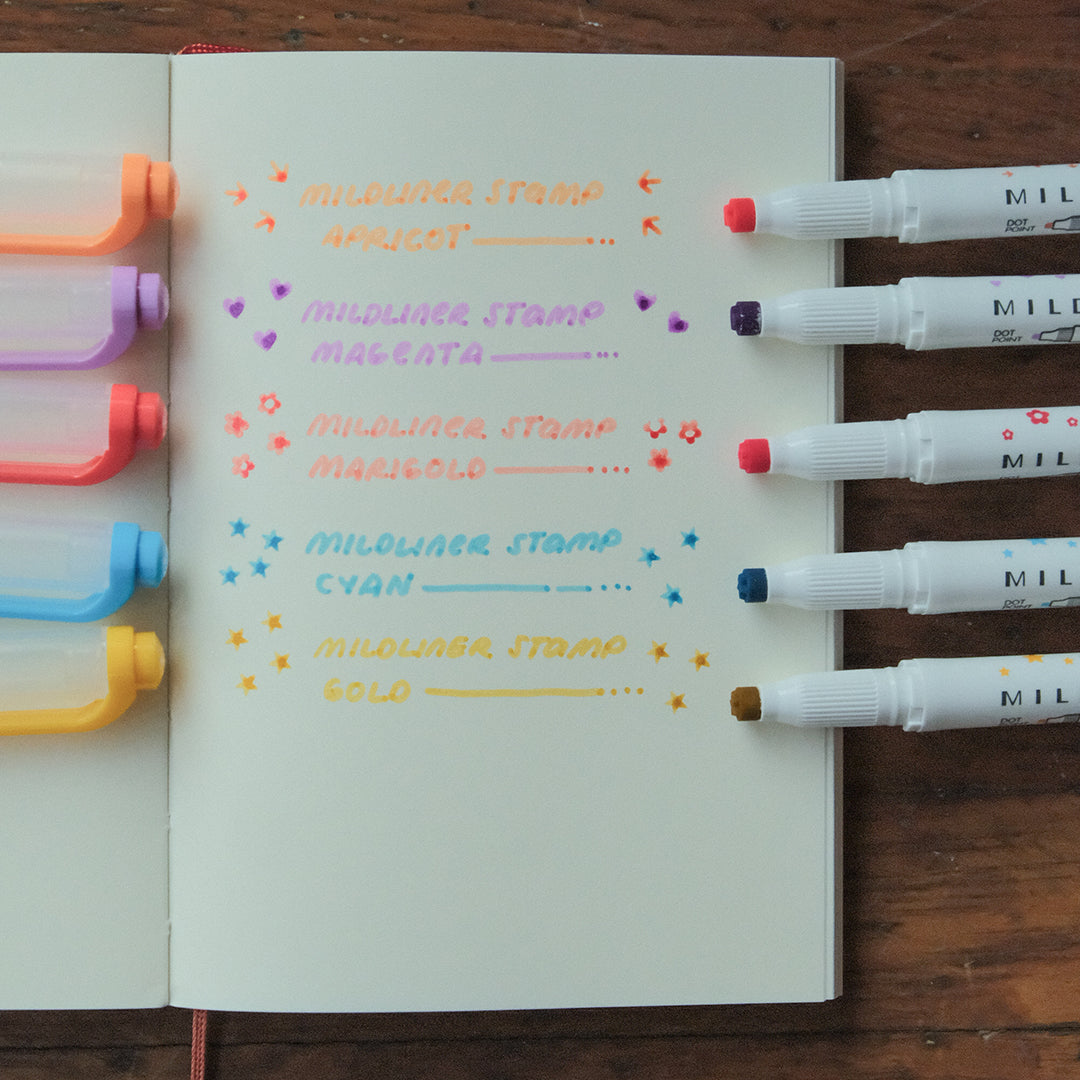 MILDLINER STAMP
APRICOT
MILDLINER STAMP
MAGENTA
MILDLINER STAMP
MARIGOLD
MILDLINER STAMP
CYAN
MILDLINER STAMP
GOLD
MIL
DOT
POINT
MILD
DOT
POINT
MIL
MIL
DOT
POINT
MIL
DOT
POINT